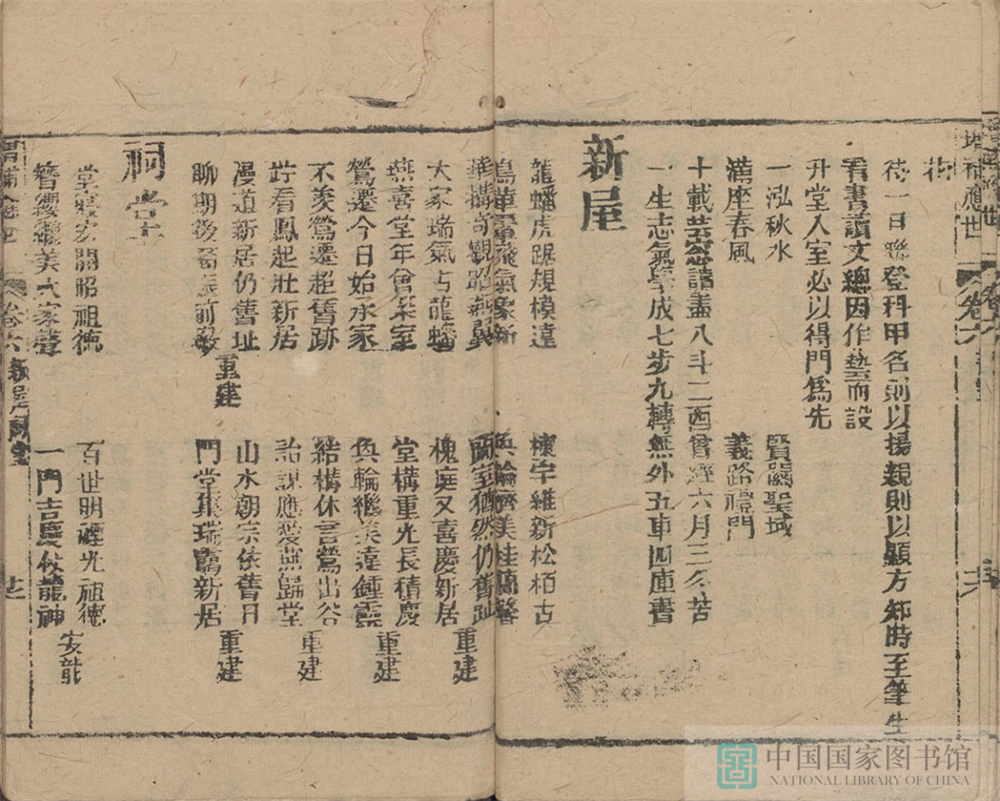 花
待一日聯登科甲名則以揚親則以顯方知時至筆生
看書讀文總因作藝而設
升堂入室必以得門爲先
一泓秋水
賢關聖域
滿座春風
義路禮門
十載芸窓讀盡八斗二酉曾經六月三冬苦
一生志氣學成七步九轉無外五車四庫書
新屋
龍蟠虎踞規模遠
棟宇維新松栢古
鳥革翬飛氣象新
奐輪濟美桂蘭馨
華構奇觀昭燕翼
蘭室猶然仍舊趾
大家瑞氣占龍蟠
槐庭又喜慶新居
重建
燕喜堂年曾梁室
堂構重光長積慶
鶯遷今日始承家
奐輪繼美遠鍾靈
重建
不羨鶯遷超舊跡
結構休言鶯出谷
竚看鳳起壯新居
詒謀應愛燕歸堂
重建
漫道新居仍舊址
山水朝宗依舊日
聊期後裔振前徽
重建
門堂集瑞靄新居
重建
祠堂
堂開昭祖德
百世明禋光祖德
簪纓繼美大家聲
一門吉慶仗龍神
安龍
卷六
新居祠堂
卷六
中国国家图书馆
NATIONAL LIBRARY OF CHINA